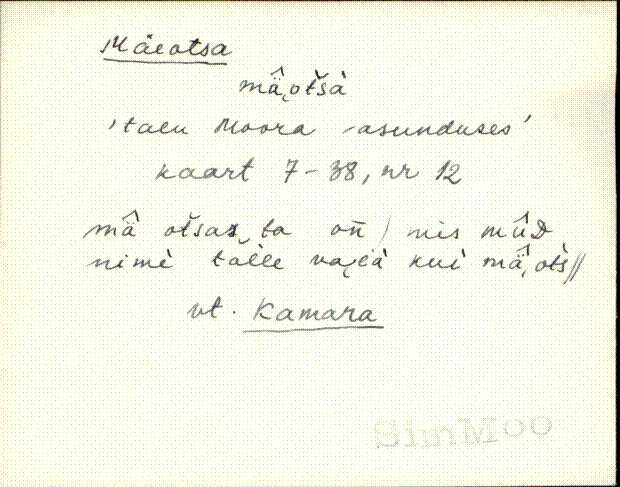 Mäeotsa
mä̂ˬotšà
'talu Moora -asunduses'
kaart 7-38, nr 12
mä̂ otšas ta on̄ / mis mûD
nimè tälle vajà kuì mä̂ˬots̀ //
vt. Kamara
SimMoo